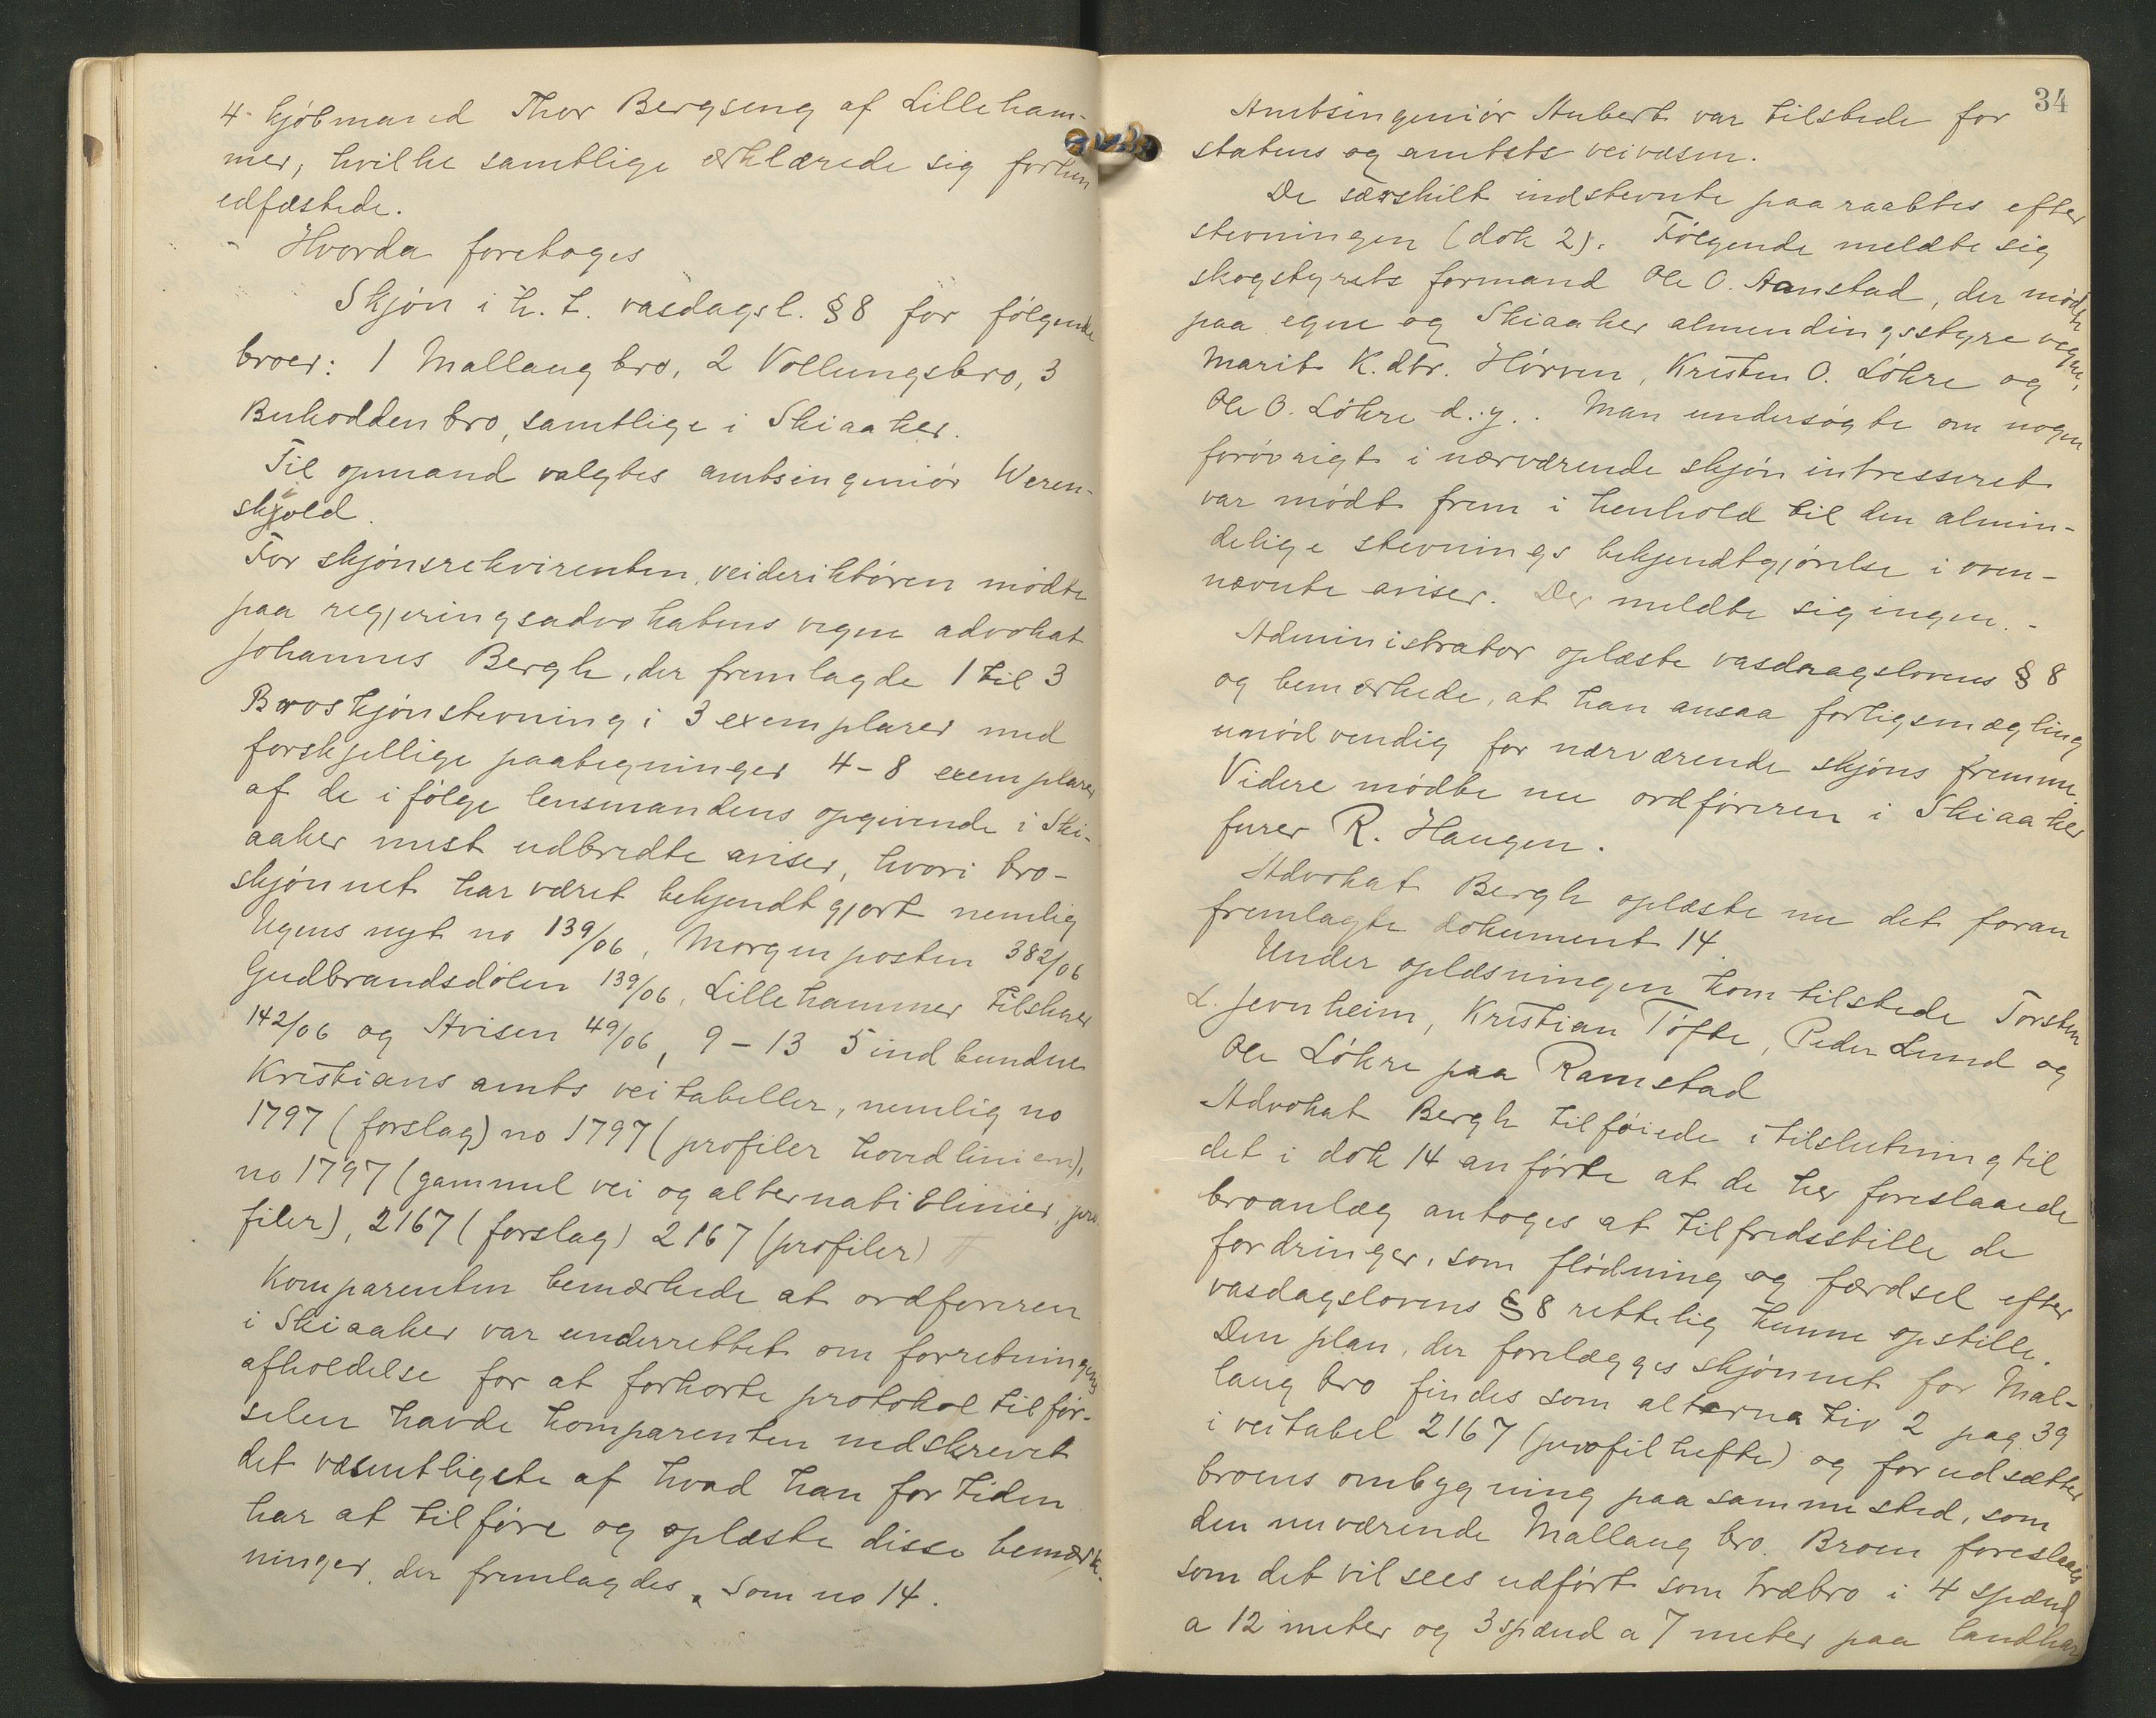 4. kjøbmand Thor Bergseng af Lilleham-
mer, hvilke samtlige erklærede sig forhen
edfæstede.
Hvorda foretoges
Skjøn i h. t. vasdagsl. § 8 for følgende
broer: 1 Mallaug bro, 2 Vollungsbro, 3
Buhodden bro, samtlige i Skiaaker.
Til opmand valgtes amtsingeniør Weren-
skjold.
For skjønsrekvirenten, veidirektøren mødte
paa regjeringsadvokatens vegne advokat
Johannes Bergh, der fremlagde 1 til 3
Broskjønstevning i 3 exemplarer med
forskjellige paategninger 4-8 exemplarer
af de i følge lensmandens opgivende i Ski-
aaker mest udbredte aviser, hvori bro-
skjønnet har været bekjendtgjort nemlig
Ugens nyt no 139/06, Morgenposten 382/06
Gudbrandsdølen 139/06, Lillehammer Tilskuer
142/06 og Avisen 49/06, 9-13 5 indbundne
Kristians amts veitabeller, nemlig no
1797 (forslag) no 1797 (profiler hovedlinien),
no 1797 (gammel vei og alternativlinier, pro-
filer), 2167 (forslag) 2167 (profiler)
Komparenten bemærkede at ordføreren
i Skiaaker var underrettet om forretningens
afholdelse for at forkorte protokoltilfør-
selen havde komparenten nedskrevet
det væsentligste af hvad han for tiden
har at tilføre og oplæste disse bemærk-
ninger, der fremlagdes som no 14.
34
Amtsingeniør Aubert var tilstede for
statens og amtets veivæsen.
De særskilt indstevnte paaraabtes efter
stevningen (dok 2). Følgende meldte sig
skogstyrets formand Ole O. Aanstad, der mødte
paa egne og Skiaaker almendingsstyre vegne,
Marit K. dtr. Hørven, Kristen O. Løkre og
Ole O. Løkre d. y.. Man undersøgte om nogen
forøvrigt i nærværende skjøn intresseret
var mødt frem i henhold til den almin-
delige stevnings bekjendtgjørelse i oven-
nævnte aviser. Der meldte sig ingen. -
Administrator oplæste vasdragslovens § 8
og bemærkede, at han ansaa forligsmægling
unødvendig for nærværende skjøns fremme.
Videre mødte nu ordføreren i Skiaaker
furer R. Haugen.
Advokat Bergh oplæste nu det foran
fremlagte dokument 14.
Under oplæsningen kom tilstede Torsten
L. Jevnheim, Kristian Tøfte, Peder Lund og
Ole Løkre paa Ramstad
Advokat Bergh tilføiede i tilslutning til
det i dok 14 anførte at de her foreslaaede
broanlæg antoges at tilfredsstille de
fordringer, som flødning og færdsel efter
vasdagslovens § 8 rettelig kunne opstille.
Den plan, der forelægges skjønnet for Mal-
laug bro findes som alternativ 2 pag 39
i veitabel 2167 (profil hefte) og forudsætter
broens ombygning paa samme sted, som
den nuværende Mallaug bro. Broen foreslaaes
som det vil sees udført som træbro i 4 spænd
a 12 meter og 3 spænd a 7 meter paa landkar